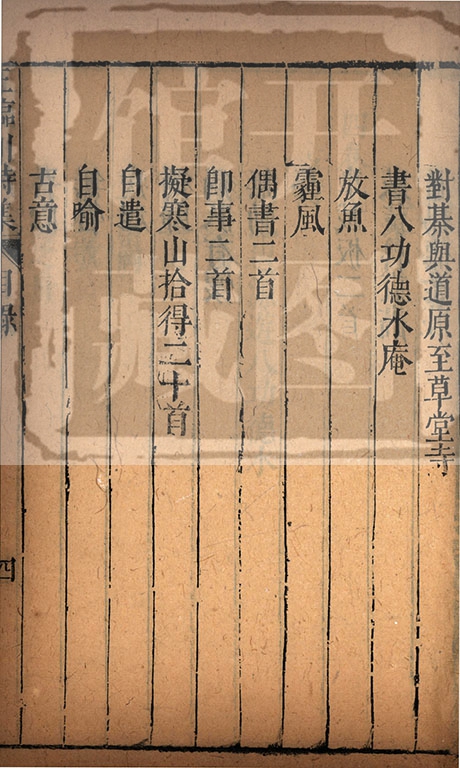 對棊與道原至草堂寺
書八功德水庵
放魚
霾風
偶書二首
卽事二首
擬寒山拾得二十首
自遣
自喻
古意
王臨川詩集
目錄
四